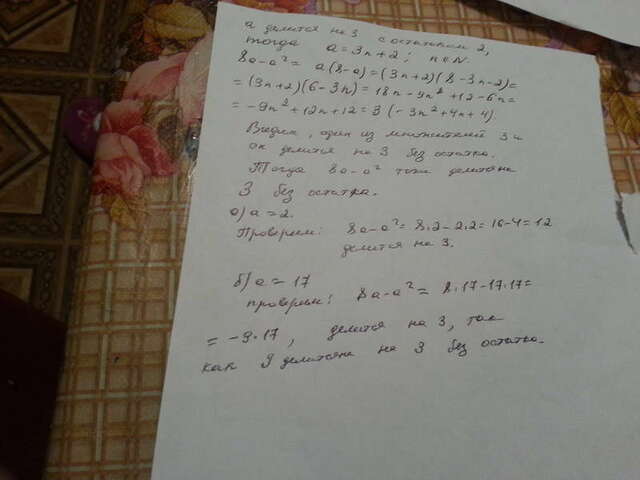 а делится на 3 с остатком 2,
тогда a = 3n+2; n∈N.
8a-a² = a(8-a) = (3n+2)(8-3n-2)=
= (3n+2)(6-3n) = 18n-9n²+12-6n=
= -9n²+12n+12 = 3(-3n²+4n+4)
Видим, один из множителей 3 и
он делится на 3 без остатка.
Тогда 8a-a² тоже делится на
3 без остатка.
а) a = 2.
Проверим: 8a-a² = 8·2-2·2 = 16-4 = 12
делится на 3.
б) a = 17
проверим: 8a-a² = 8·17-17·17=
= -9·17, делится на 3, так
как 9 делится на 3 без остатка.